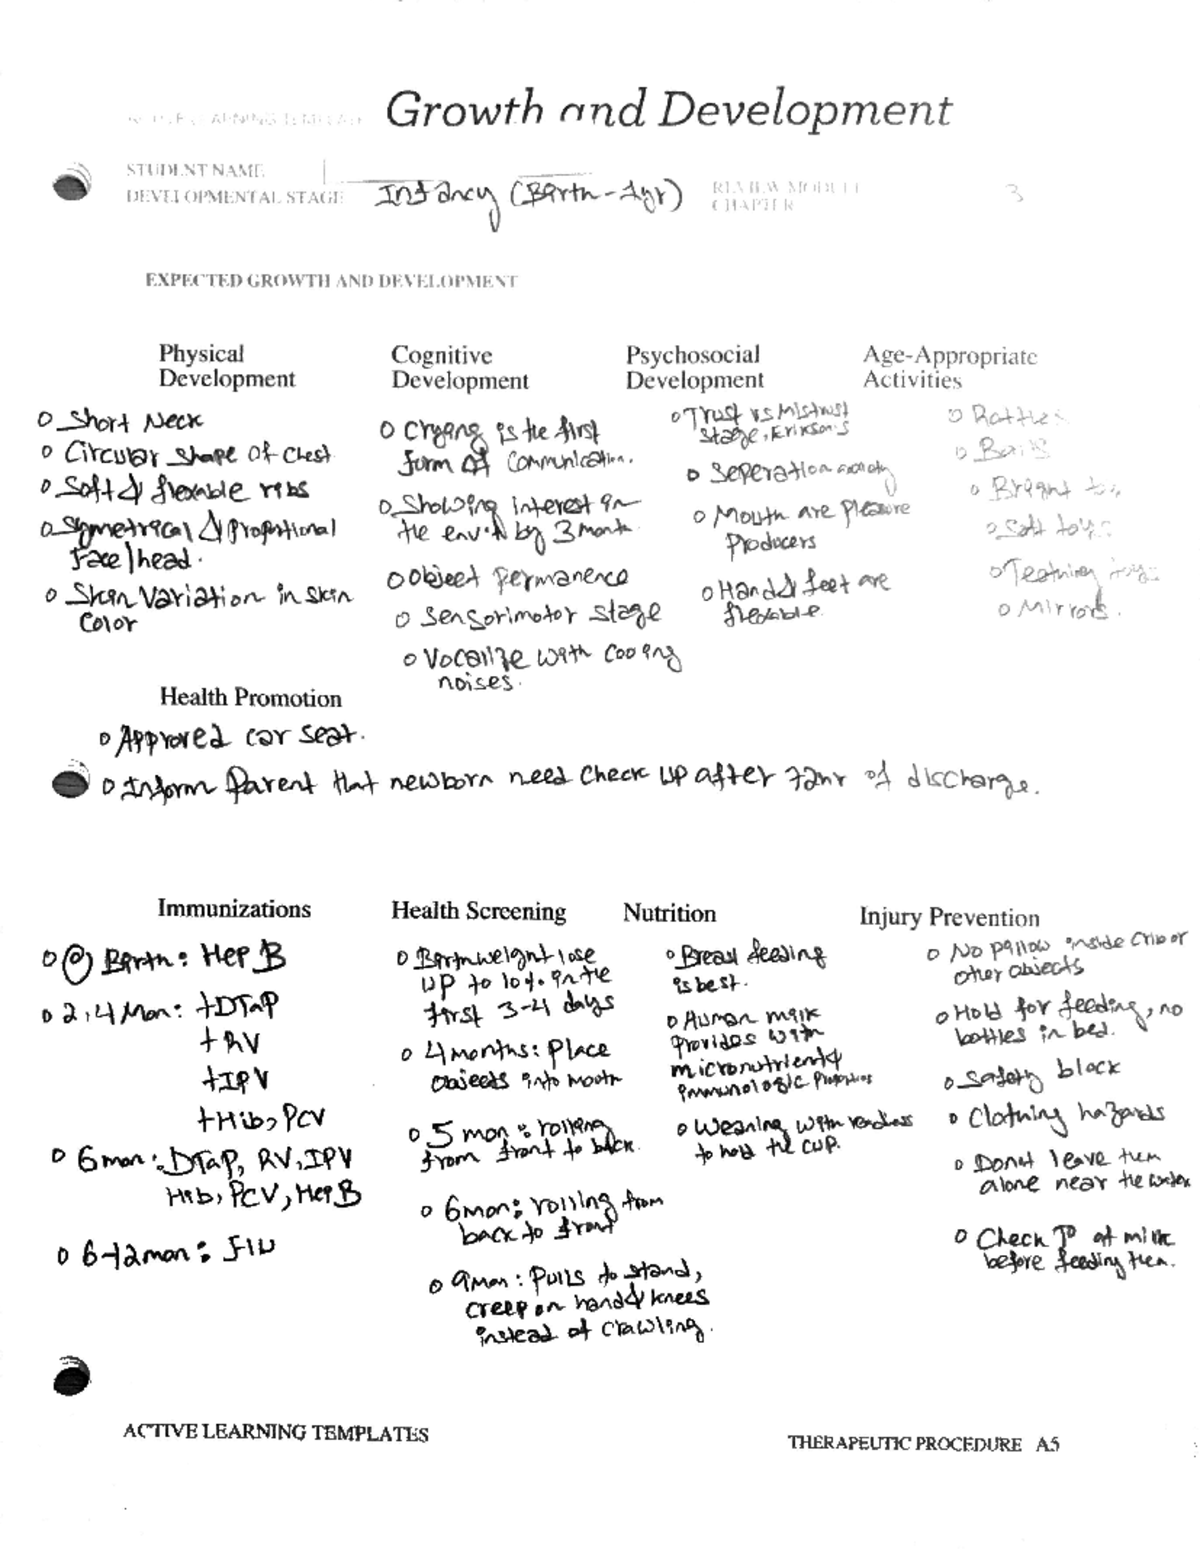 ACTIVE LEARNING TEMPLATE
Growth and Development
STUDENT NAME
DEVELOPMENTAL STAGE Infancy (Birth-1yr)
REVIEW MODULE
CHAPTER
3
EXPECTED GROWTH AND DEVELOPMENT
Physical
Development
o Short Neck
o Circular shape of Chest
o Soft & flexable ribs
o Symetrical & Proportional
Face/head.
o Sken Variation in skin
Color
Cognitive
Development
o Crying is the first
form of Communication.
o Showing interest in
the env't by 3 month.
o Object permanence
o Sensorimotor stage
o Vocalize with cooing
noises.
Psychosocial
Development
o Trust vs Mistrust
stage, Erikson's
o Seperation anxiety
o Mouth are pleasure
Producers
o Hand & feet are
flexable.
Age-Appropriate
Activities
o Rattles
o Balls
o Bright toys
o Soft toys
o Teething toys
o Mirrors.
Health Promotion
o Approved car seat.
o Inform parent that newborn need check up after 72hr of discharge.
Immunizations
o @ Birth: Hep B
o 2,4 Mon: +DTaP
+RV
+IPV
+Hib, PCV
o 6mon: DTaP, RV, IPV
Hib, PCV, Hep B
o 6-12mon:
Health Screening
o Birthweight lose
up to 10% in the
first 3-4 days
o 4months: Place
objects into mouth
o 5 mon: rolling
from front to back.
o 6mon: rolling from
back to front
o 9mon: Pulls to stand,
creep on hand & knees
instead of crawling.
Nutrition
o Breast feeding
is best.
o Human milk
Provides with
micronutrient &
immunologic Properties
o Weaning with readiness
to hold the cup.
Injury Prevention
o No pillow inside crib or
other objects
o Hold for feeding, no
bottles in bed.
o Safety block
o Clothing hazards
o Donot leave them
alone near the water
o Check To of milk
before feeding them.
ACTIVE LEARNING TEMPLATES
THERAPEUTIC PROCEDURE A5